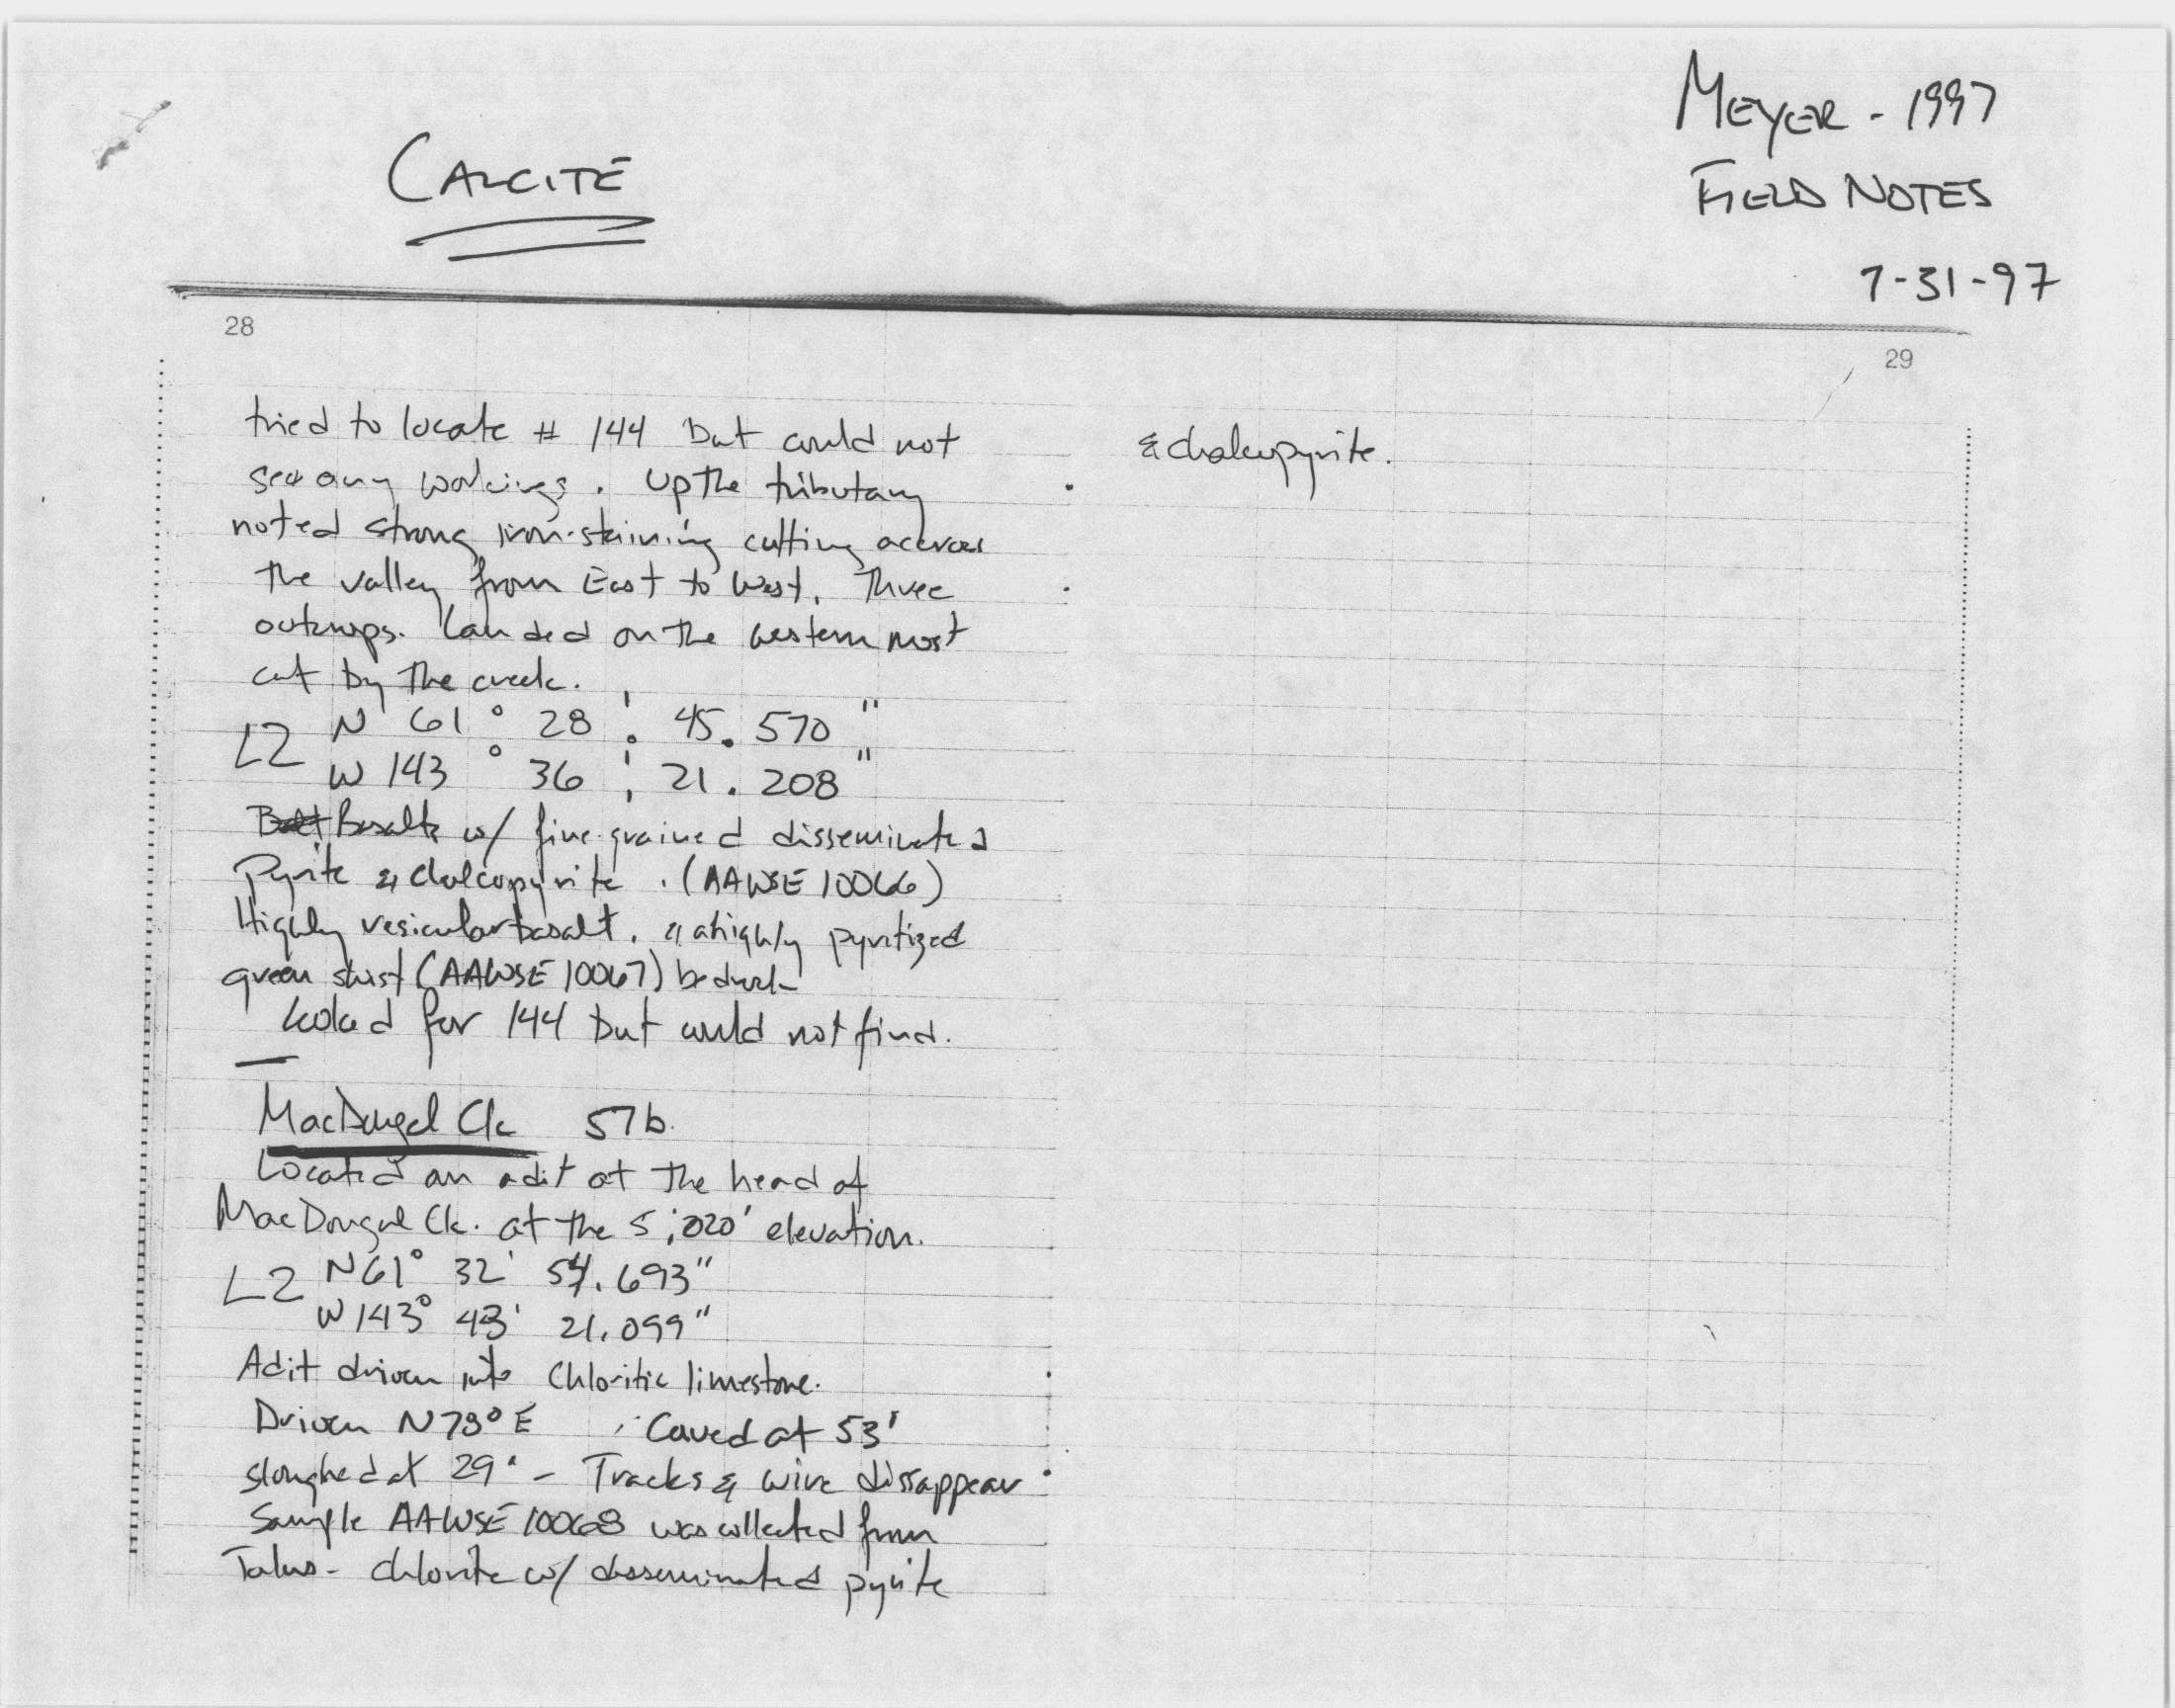 MEYER - 1997
FIELD NOTES
7-31-97
CALCITE
28
tried to locate # 144 but could not
see any workings. Up the tributary
noted strong iron-staining cutting accross
the valley from East to West. Three
outcrops. Landed on the western most
cut by the creek.
L2 N 61° 28' 45.570"
W 143° 36' 21.208"
Basalt w/ fine-grained disseminated
Pyrite & Chalcopyrite. (AAWSE 10066)
Highly vesicular basalt. & a highly pyritized
green shist (AAWSE 10067) bedrock
Looked for 144 but could not find.
MacDougal Ck 57b.
Located an adit at the head of
MacDougal Ck. at the 5,020' elevation.
L2 N61° 32' 54.693"
W143° 43' 21.099"
Adit driven into Chloritic limestone.
Driven N73°E Caved at 53'
sloughed at 29' - Tracks & wire dissappear
Sample AAWSE 10068 was collected from
Talus - chlorite w/ disseminated pyrite
29
& chalcopyrite.